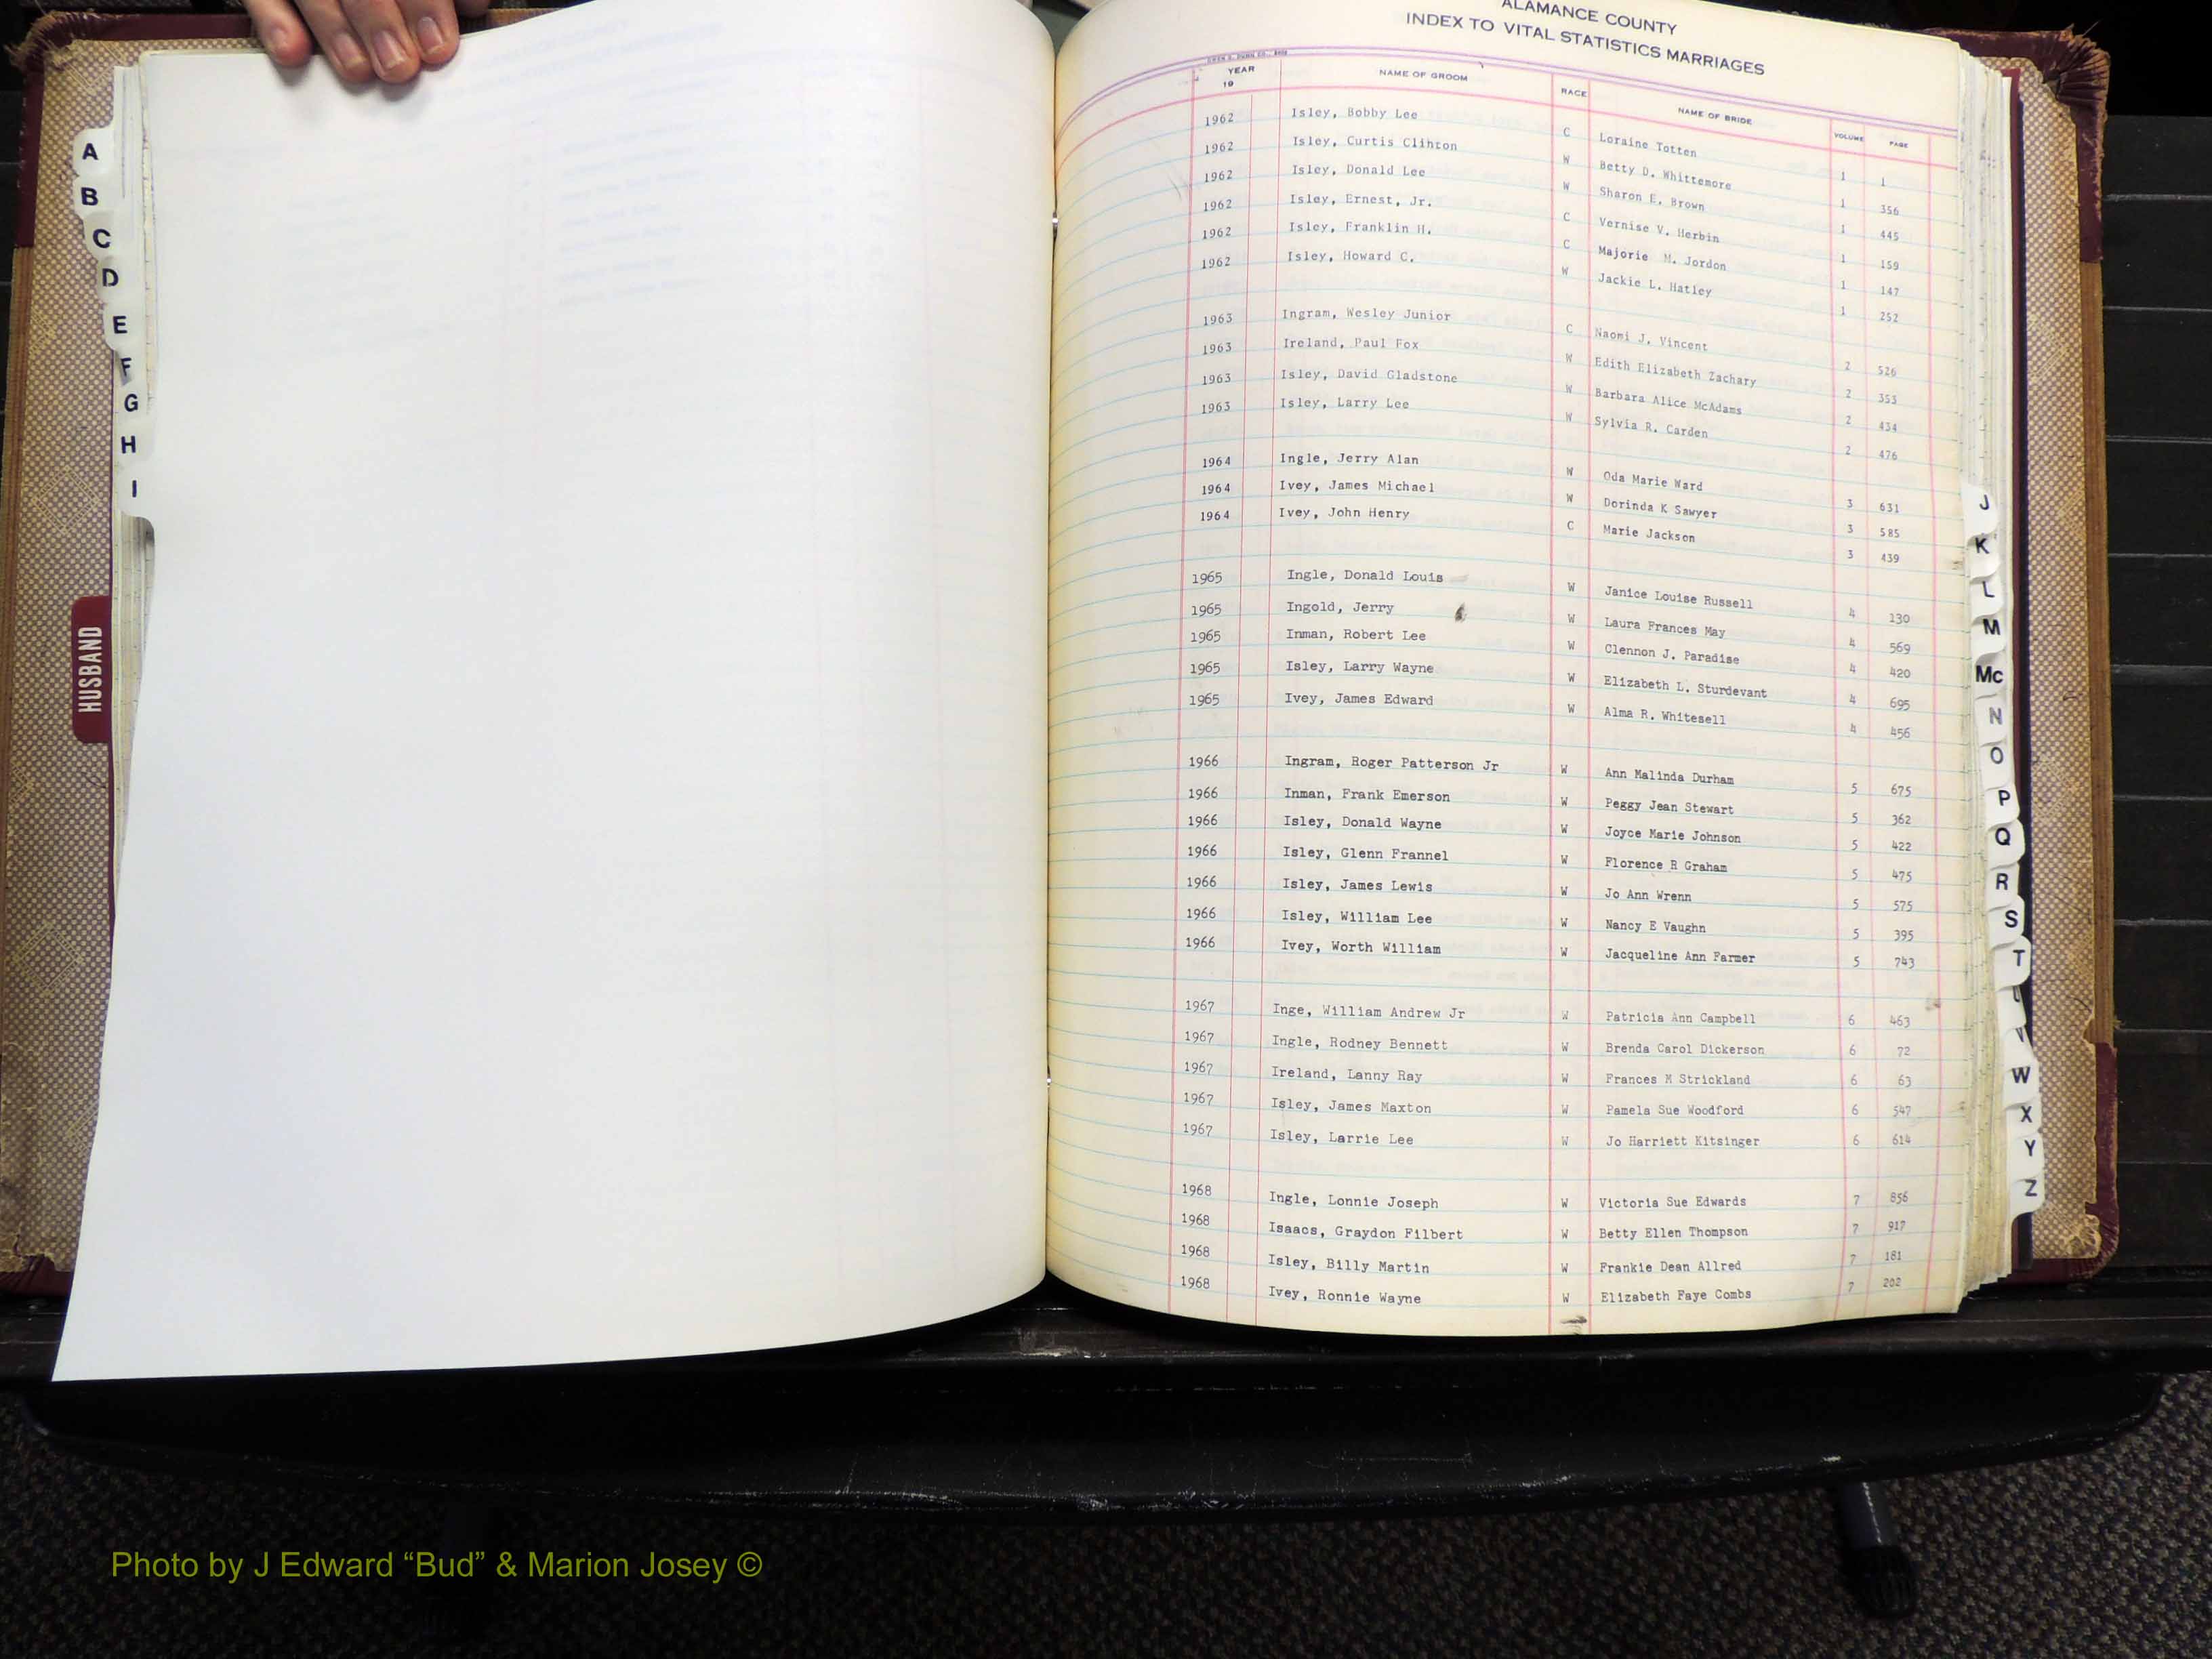 A
B
C
D
E
F
G
H
I
HUSBAND
ALAMANCE COUNTY
INDEX TO VITAL STATISTICS MARRIAGES
YEAR 19 NAME OF GROOM RACE NAME OF BRIDE VOLUME PAGE
1962 Isley, Bobby Lee C Loraine Totten 1 1
1962 Isley, Curtis Clinton W Betty D. Whittemore 1 356
1962 Isley, Donald Lee W Sharon E. Brown 1 445
1962 Isley, Ernest, Jr. C Vernise V. Herbin 1 159
1962 Isley, Franklin H. C Majorie M. Jordon 1 147
1962 Isley, Howard C. W Jackie L. Hatley 1 252
1963 Ingram, Wesley Junior C Naomi J. Vincent 2 526
1963 Ireland, Paul Fox W Edith Elizabeth Zachary 2 353
1963 Isley, David Gladstone W Barbara Alice McAdams 2 434
1963 Isley, Larry Lee W Sylvia R. Carden 2 476
1964 Ingle, Jerry Alan W Oda Marie Ward 3 631
1964 Ivey, James Michael W Dorinda K Sawyer 3 585
1964 Ivey, John Henry C Marie Jackson 3 439
1965 Ingle, Donald Louis W Janice Louise Russell 4 130
1965 Ingold, Jerry W Laura Frances May 4 569
1965 Inman, Robert Lee W Clennon J. Paradise 4 420
1965 Isley, Larry Wayne W Elizabeth L. Sturdevant 4 695
1965 Ivey, James Edward W Alma R. Whitesell 4 456
1966 Ingram, Roger Patterson Jr W Ann Malinda Durham 5 675
1966 Inman, Frank Emerson W Peggy Jean Stewart 5 362
1966 Isley, Donald Wayne W Joyce Marie Johnson 5 422
1966 Isley, Glenn Frannel W Florence R Graham 5 475
1966 Isley, James Lewis W Jo Ann Wrenn 5 575
1966 Isley, William Lee W Nancy E Vaughn 5 395
1966 Ivey, Worth William W Jacqueline Ann Farmer 5 743
1967 Inge, William Andrew Jr W Patricia Ann Campbell 6 463
1967 Ingle, Rodney Bennett W Brenda Carol Dickerson 6 72
1967 Ireland, Lanny Ray W Frances M Strickland 6 63
1967 Isley, James Maxton W Pamela Sue Woodford 6 547
1967 Isley, Larrie Lee W Jo Harriett Kitsinger 6 614
1968 Ingle, Lonnie Joseph W Victoria Sue Edwards 7 856
1968 Isaacs, Graydon Filbert W Betty Ellen Thompson 7 917
1968 Isley, Billy Martin W Frankie Dean Allred 7 181
1968 Ivey, Ronnie Wayne W Elizabeth Faye Combs 7 202
J
K
L
M
Mc
N
O
P
Q
R
S
T
U
V
W
X
Y
Z
Photo by J Edward “Bud” & Marion Josey ©